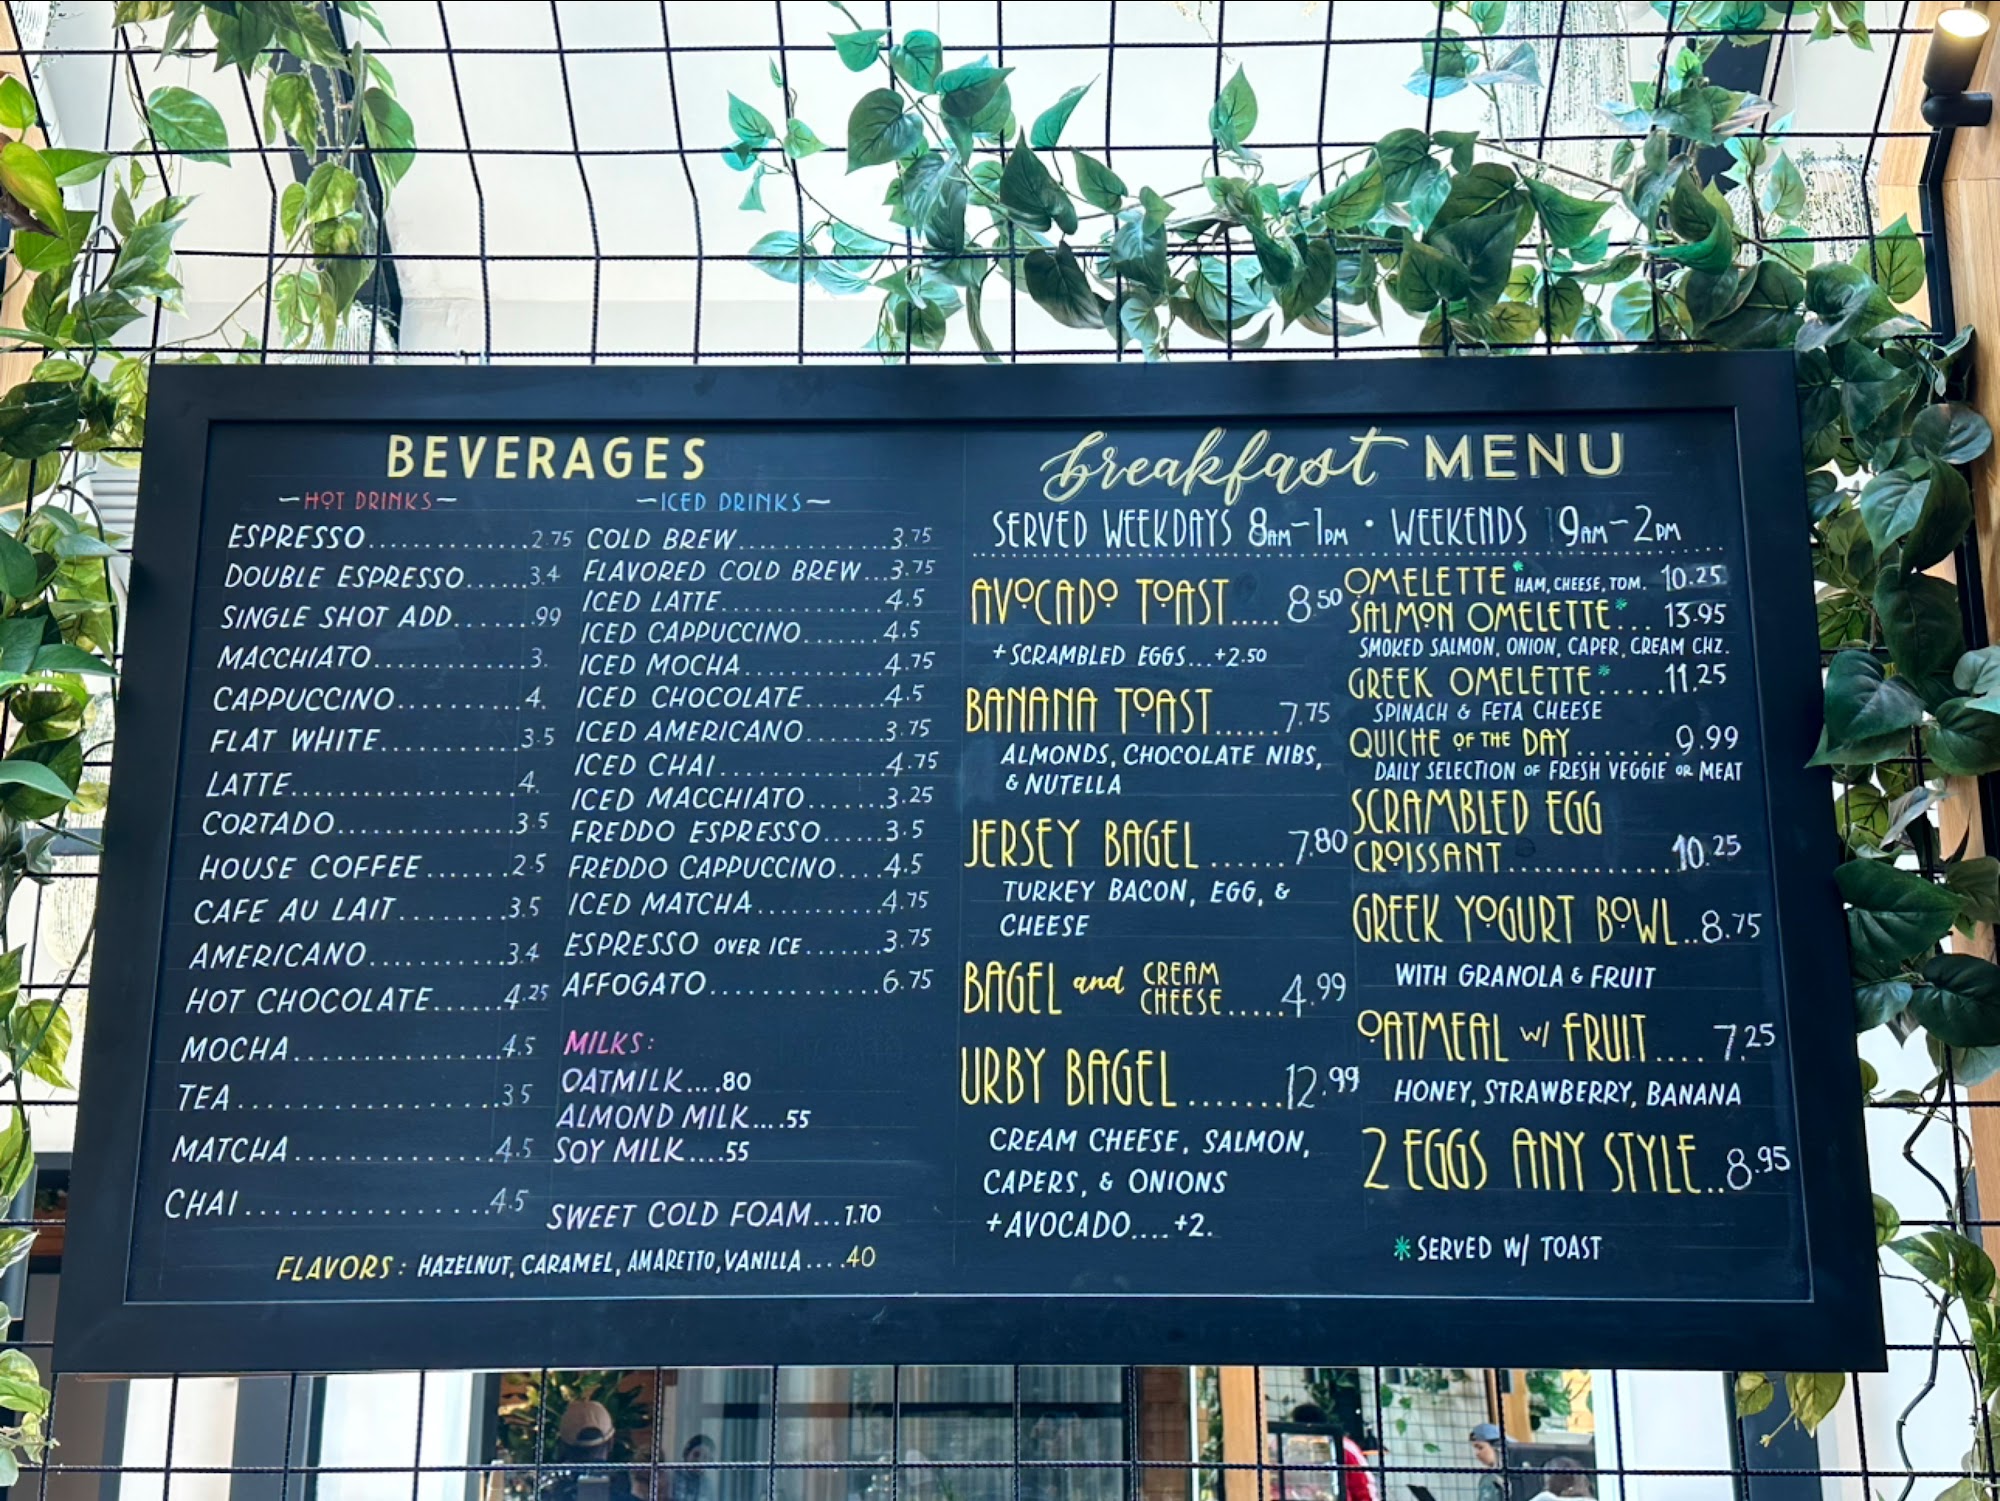 BEVERAGES
-HOT DRINKS-
ESPRESSO..............2.75
DOUBLE ESPRESSO......3.4
SINGLE SHOT ADD.......99
MACCHIATO..............3.
CAPPUCCINO............4.
FLAT WHITE............3.5
LATTE....................4.
CORTADO...............3.5
HOUSE COFFEE........2.5
CAFE AU LAIT.........3.5
AMERICANO...........3.4
HOT CHOCOLATE......4.25
MOCHA..................4.5
TEA.......................3.5
MATCHA.................4.5
CHAI.....................4.5
-ICED DRINKS-
COLD BREW..............3.75
FLAVORED COLD BREW...3.75
ICED LATTE..............4.5
ICED CAPPUCCINO.......4.5
ICED MOCHA............4.75
ICED CHOCOLATE.......4.5
ICED AMERICANO.......3.75
ICED CHAI..............4.75
ICED MACCHIATO.......3.25
FREDDO ESPRESSO......3.5
FREDDO CAPPUCCINO....4.5
ICED MATCHA...........4.75
ESPRESSO OVER ICE.......3.75
AFFOGATO..............6.75
MILKS:
OATMILK....80
ALMOND MILK....55
SOY MILK....55
SWEET COLD FOAM...1.10
FLAVORS: HAZELNUT, CARAMEL, AMARETTO, VANILLA....40
breakfast MENU
SERVED WEEKDAYS 8AM-1PM • WEEKENDS 9AM-2PM
AVOCADO TOAST.....8.50
+SCRAMBLED EGGS...+2.50
BANANA TOAST......7.75
ALMONDS, CHOCOLATE NIBS,
& NUTELLA
JERSEY BAGEL......7.80
TURKEY BACON, EGG, &
CHEESE
BAGEL and CREAM
CHEESE.....4.99
URBY BAGEL.......12.99
CREAM CHEESE, SALMON,
CAPERS, & ONIONS
+AVOCADO....+2.
OMELETTE* HAM, CHEESE, TOM. 10.25
SALMON OMELETTE*... 13.95
SMOKED SALMON, ONION, CAPER, CREAM CHZ.
GREEK OMELETTE*.....11.25
SPINACH & FETA CHEESE
QUICHE OF THE DAY.......9.99
DAILY SELECTION OF FRESH VEGGIE OR MEAT
SCRAMBLED EGG
CROISSANT..............10.25
GREEK YOGURT BOWL..8.75
WITH GRANOLA & FRUIT
OATMEAL W/ FRUIT....7.25
HONEY, STRAWBERRY, BANANA
2 EGGS ANY STYLE..8.95
*SERVED W/ TOAST